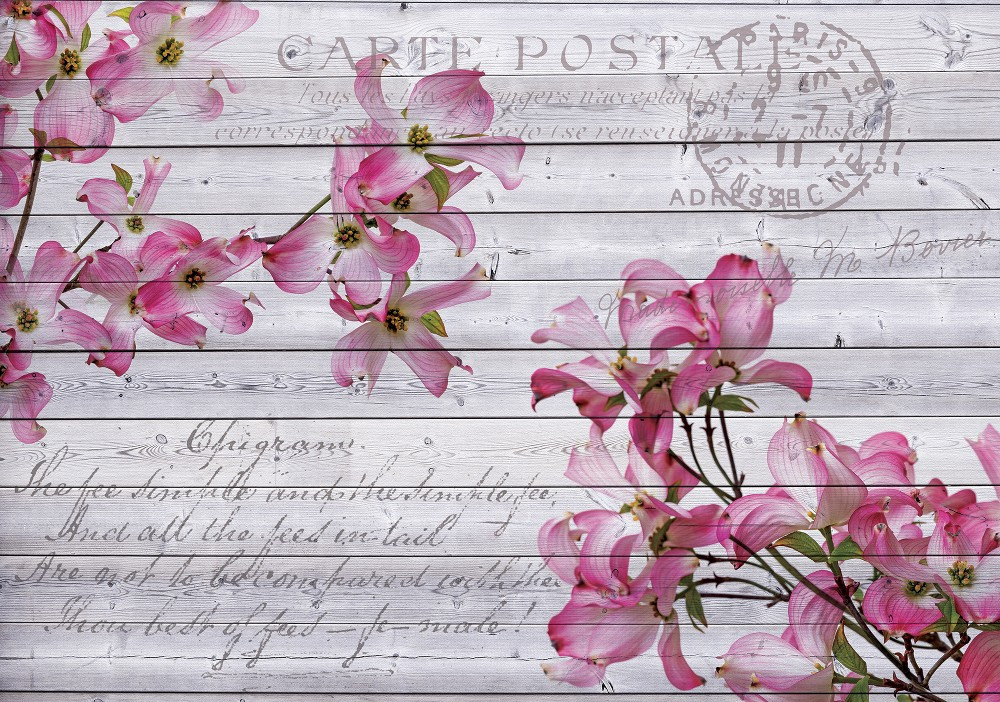 CARTE POSTALE
Tous les pays étrangers n'acceptant pas la
correspondance au recto (se renseigner à la poste)
PARIS
ADRESSE
Mademoiselle M Bovier
Epigram.
The fee simple and the simple fee,
And all the fees in-tail
Are not to be compared with thee
Thou best of fees – fe-male!